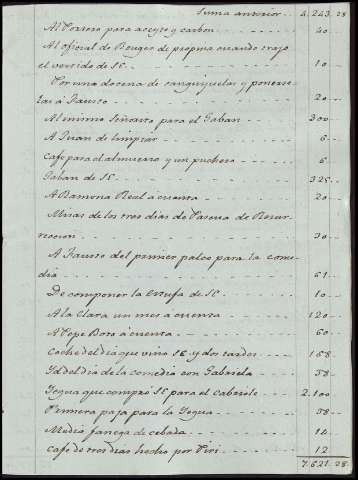 Suma anterior.. 4.243.28
Al Portero para aceyte y carbon 40..
Al oficial de Bouges de propina cuando trajo
el vestido de SE. 10..
Por una docena de sanguijuelas y ponerse
las á Fausto 20..
Al mismo Señorito para el Gaban 300..
A Juan de limpiar 6..
Cafe para el almuerzo y un puchero 6..
Gaban de SE 325..
A Ramona Real á cuenta 20..
Misas de los tres dias de Pascua de Resur
reccion 30..
A Fausto del primer palco para la come
dia 61..
De componer la estufa de SE 10..
A la Clara un mes á cuenta 120..
A Pepe Boto á cuenta 60..
Coche del dia que vino SE y dos tardes 158..
Yd del dia de la comedia con Gabriela 38..
Yegua que compró SE para el cabriole 2.100
Primera paja para la Yegua 38..
Media fanega de cebada 14..
Cafe de tres dias hecho por Piri 12
7.621.28.